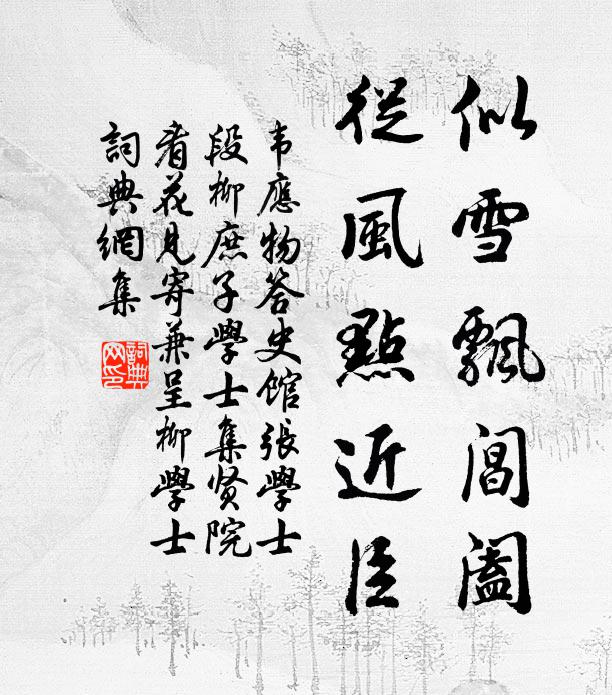 似雪飄閶闔
從風點近臣
韦應物答史館張學士
段柳庶子學士集贤院
看花見寄兼呈柳學士
詞典網集
詞典網印